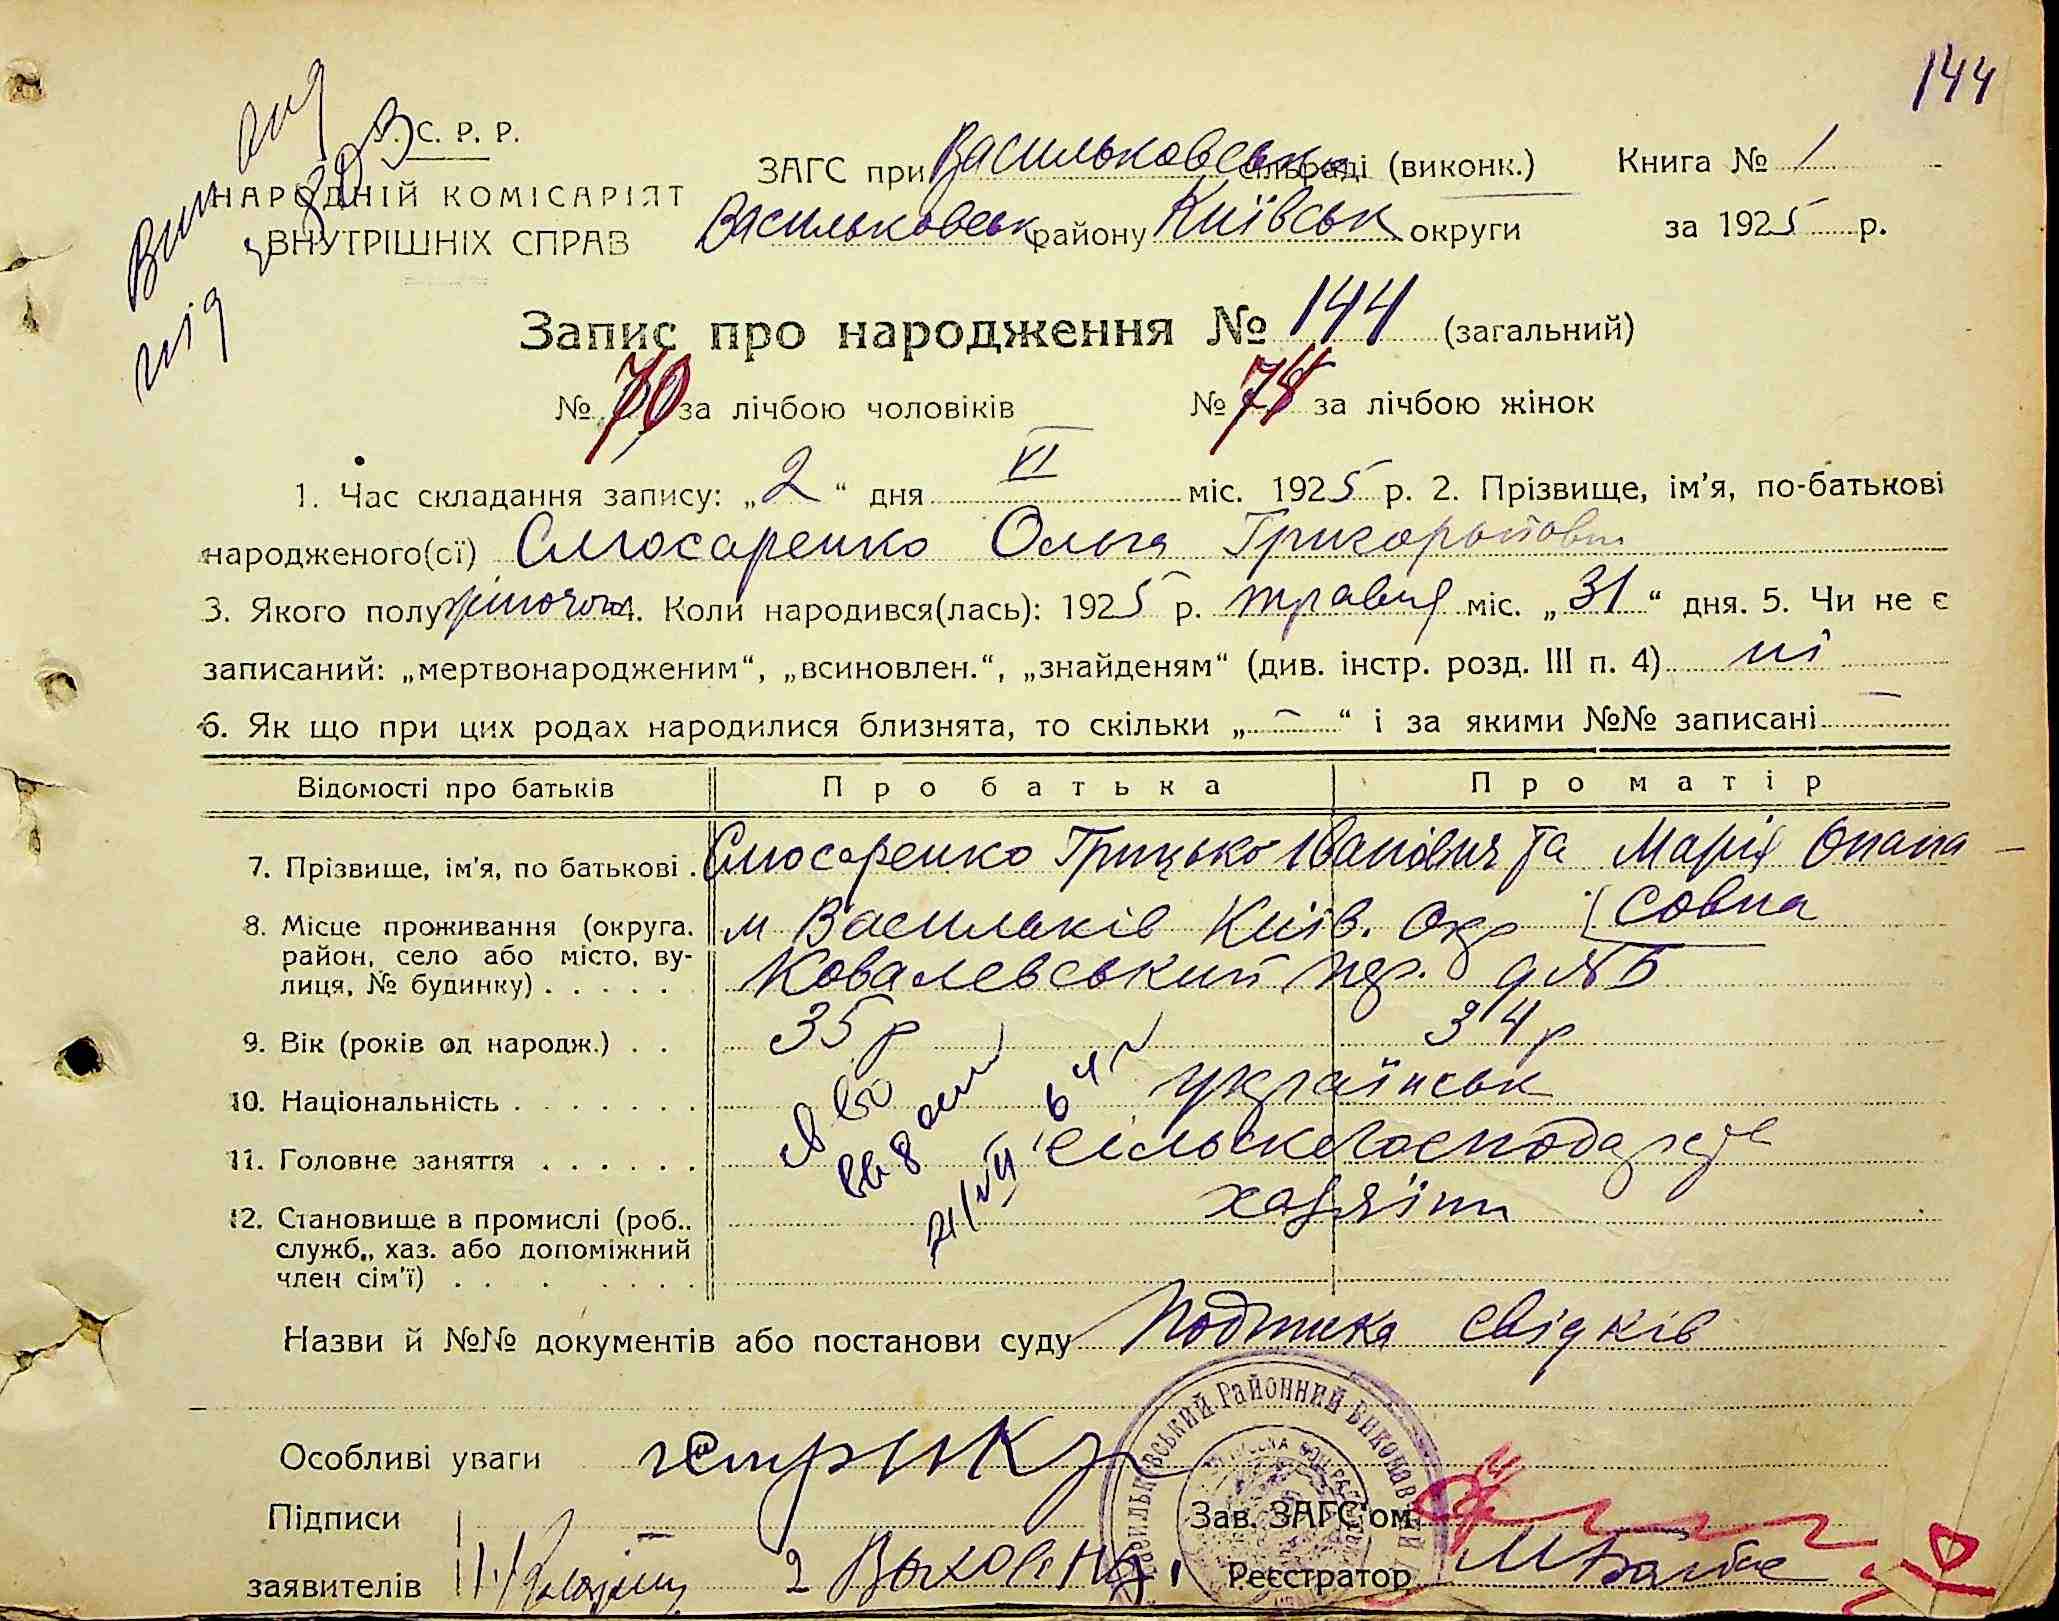 144
У. С. Р. Р.
НАРОДНІЙ КОМІСАРІЯТ
ВНУТРІШНІХ СПРАВ
ЗАГС при Васильковськ сільраді (виконк.)
Васильковськ району Київськ округи
Книга № 1
за 1925 р.
Запис про народження № 144 (загальний)
№ 70 за лічбою чоловіків № 74 за лічбою жінок
1. Час складання запису: „2“ дня VI міс. 1925 р. 2. Прізвище, ім'я, по-батькові
народженого(сї) Слюсаренко Ольга Григорьївни
3. Якого полу жіночого 4. Коли народився(лась): 1925 р. травня міс. „31“ дня. 5. Чи не є
записаний: „мертвонародженим“, „всиновлен.“, „знайденям“ (див. інстр. розд. III п. 4) ні
6. Як що при цих родах народилися близнята, то скільки „–“ і за якими №№ записані –
Відомості про батьків Про батька Про матір
7. Прізвище, ім'я, по батькові . Слюсаренко Грицько Іванович та Марія Опана-
совна
8. Місце проживання (округа. м Васильків Київ. Окр
район, село або місто, ву- Ковалевський пер. д № 5
лиця, № будинку) . . . . .
9. Вік (років од народж.) . . 35 р 34 р
10. Національність . . . . . . . українськ
11. Головне заняття . . . . . . сільске господарств
12. Становище в промислі (роб.. хазяїни
служб., хаз. або допоміжний
член сім'ї) . . . . . . . .
Назви й №№ документів або постанови суду Подписка свідків
Особливі уваги
Васильківський Районний Виконавчий
Підписи
заявителів 1 2
Зав. ЗАГС'ом
Реєстратор